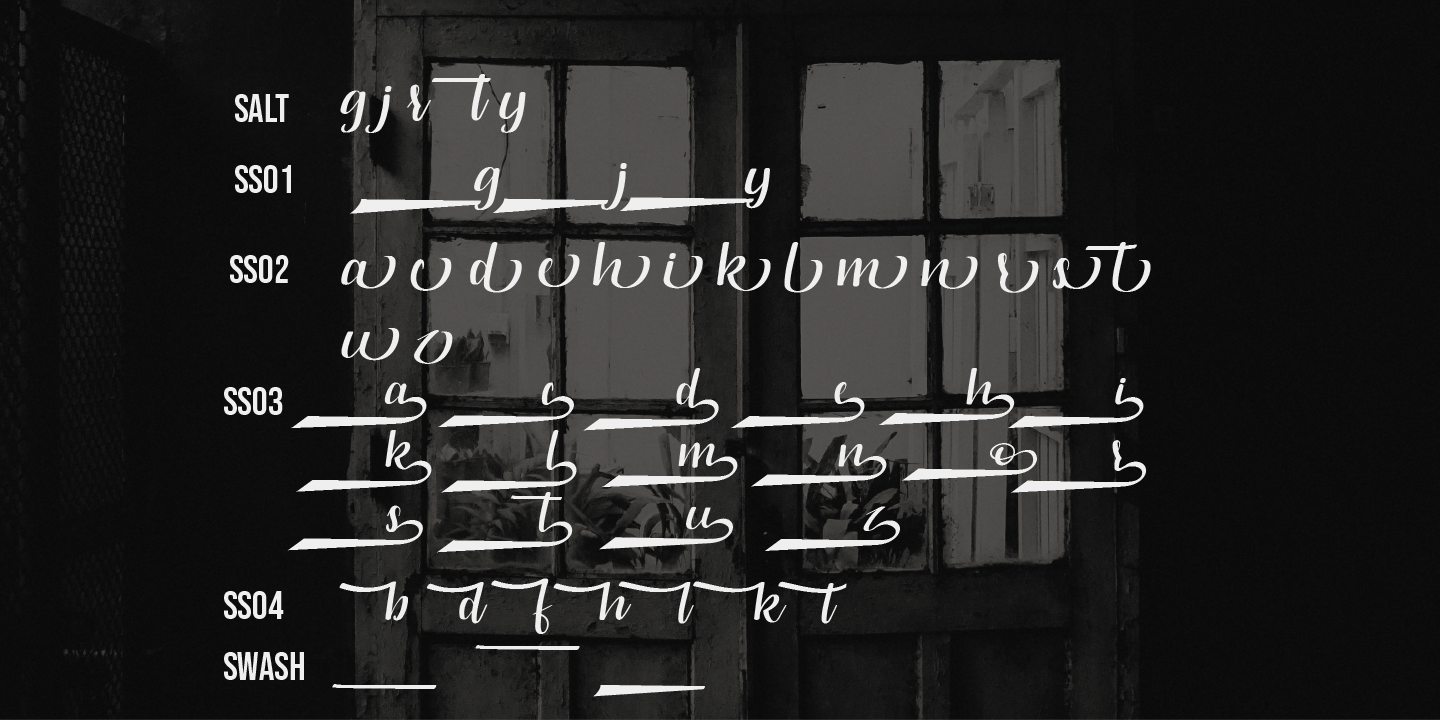 SALT g j r t y
SS01 g j y
SS02 a c d e h i k l m n r s t
w o
SS03 a c d e h i
k l m n o r
s t u z
SS04 b d f h l k t
SWASH